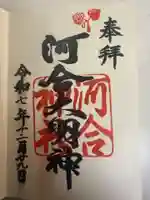 奉拝
河合大明神
河合神社
令和七年十二月廿九日